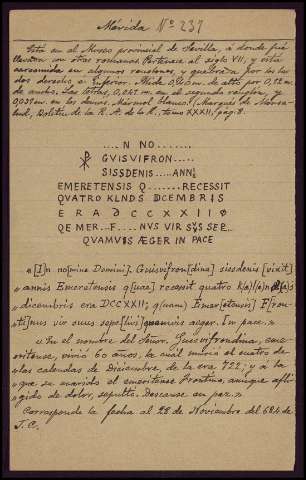 Mérida Nº 237
Está en el Museo provincial de Sevilla, á donde fué
llevada con otras romanas. Pertenece al siglo VII, y está
carcomida en algunos renglones, y quebrada por los la-
dos derecho é inferior. Mide 0,20 m. de alto por 0,12 m.
de ancho. Las letras, 0,021 m. en el segundo renglón, y
0,025 m. en los demás. Mármol blanco. (Marqués de Monsa-
lud, Boletín de la R. A. de la H., tomo XXXII, pág. 8.
....N NO.....
GVISVIFRON....
SISSDENIS.....ANNI
EMERETENSIS Q.......RECESSIT
QVATRO KLNDS DCEMBRIS
ERA DCCXXII
QE MER...F....NVS VIR SVS SER...
QVAMVIS ÆGER IN PACE
«[I]n no[mine Domini]. Guisvifron[dina] sissdenis [vixit]
annis Emeretensis q[uae] recessit quatro k[a]l[e]nd[a]s
dicembris era DCCXXII; q[uam] Emer[etensis] F[ron-
ti]nus vir suus sepe[livit] quamvis aeger. In pace.»
«En el nombre del Señor. Guisvifrondina, eme-
ritense, vivió 60 años, la cual murió el cuatro de
las calendas de Diciembre, de la era 722; y á la
que su marido el emeritense Frontino, aunque afli-
gido de dolor, sepultó. Descanse en paz.»
Corresponde la fecha al 28 de Noviembre del 684 de
J. C.